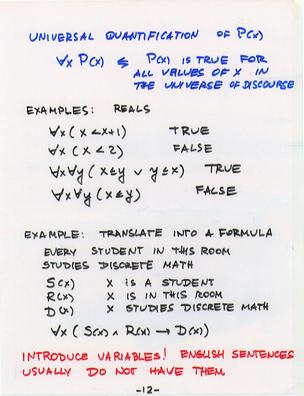 UNIVERSAL QUANTIFICATION OF P(x)
∀x P(x) ≤ P(x) IS TRUE FOR
ALL VALUES OF X IN
THE UNIVERSE OF DISCOURSE
EXAMPLES: REALS
∀x (x < x+1) TRUE
∀x (x < 2) FALSE
∀x∀y (x ≤ y ∨ y ≤ x) TRUE
∀x∀y (x ≤ y) FALSE
EXAMPLE: TRANSLATE INTO A FORMULA
EVERY STUDENT IN THIS ROOM
STUDIES DISCRETE MATH
S(x) X IS A STUDENT
R(x) X IS IN THIS ROOM
D(x) X STUDIES DISCRETE MATH
∀x (S(x) ∧ R(x) → D(x))
INTRODUCE VARIABLES! ENGLISH SENTENCES
USUALLY DO NOT HAVE THEM
-12-